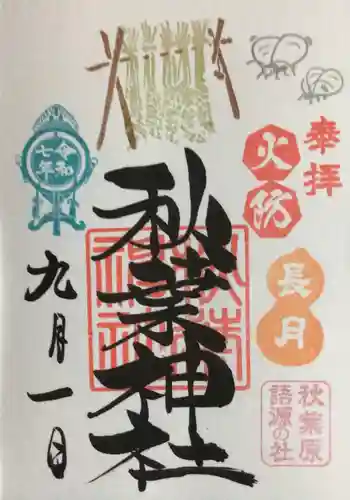 奉拝
火防
長月
秋葉原
語源の社
秋葉神社
令和
七年
九月一日